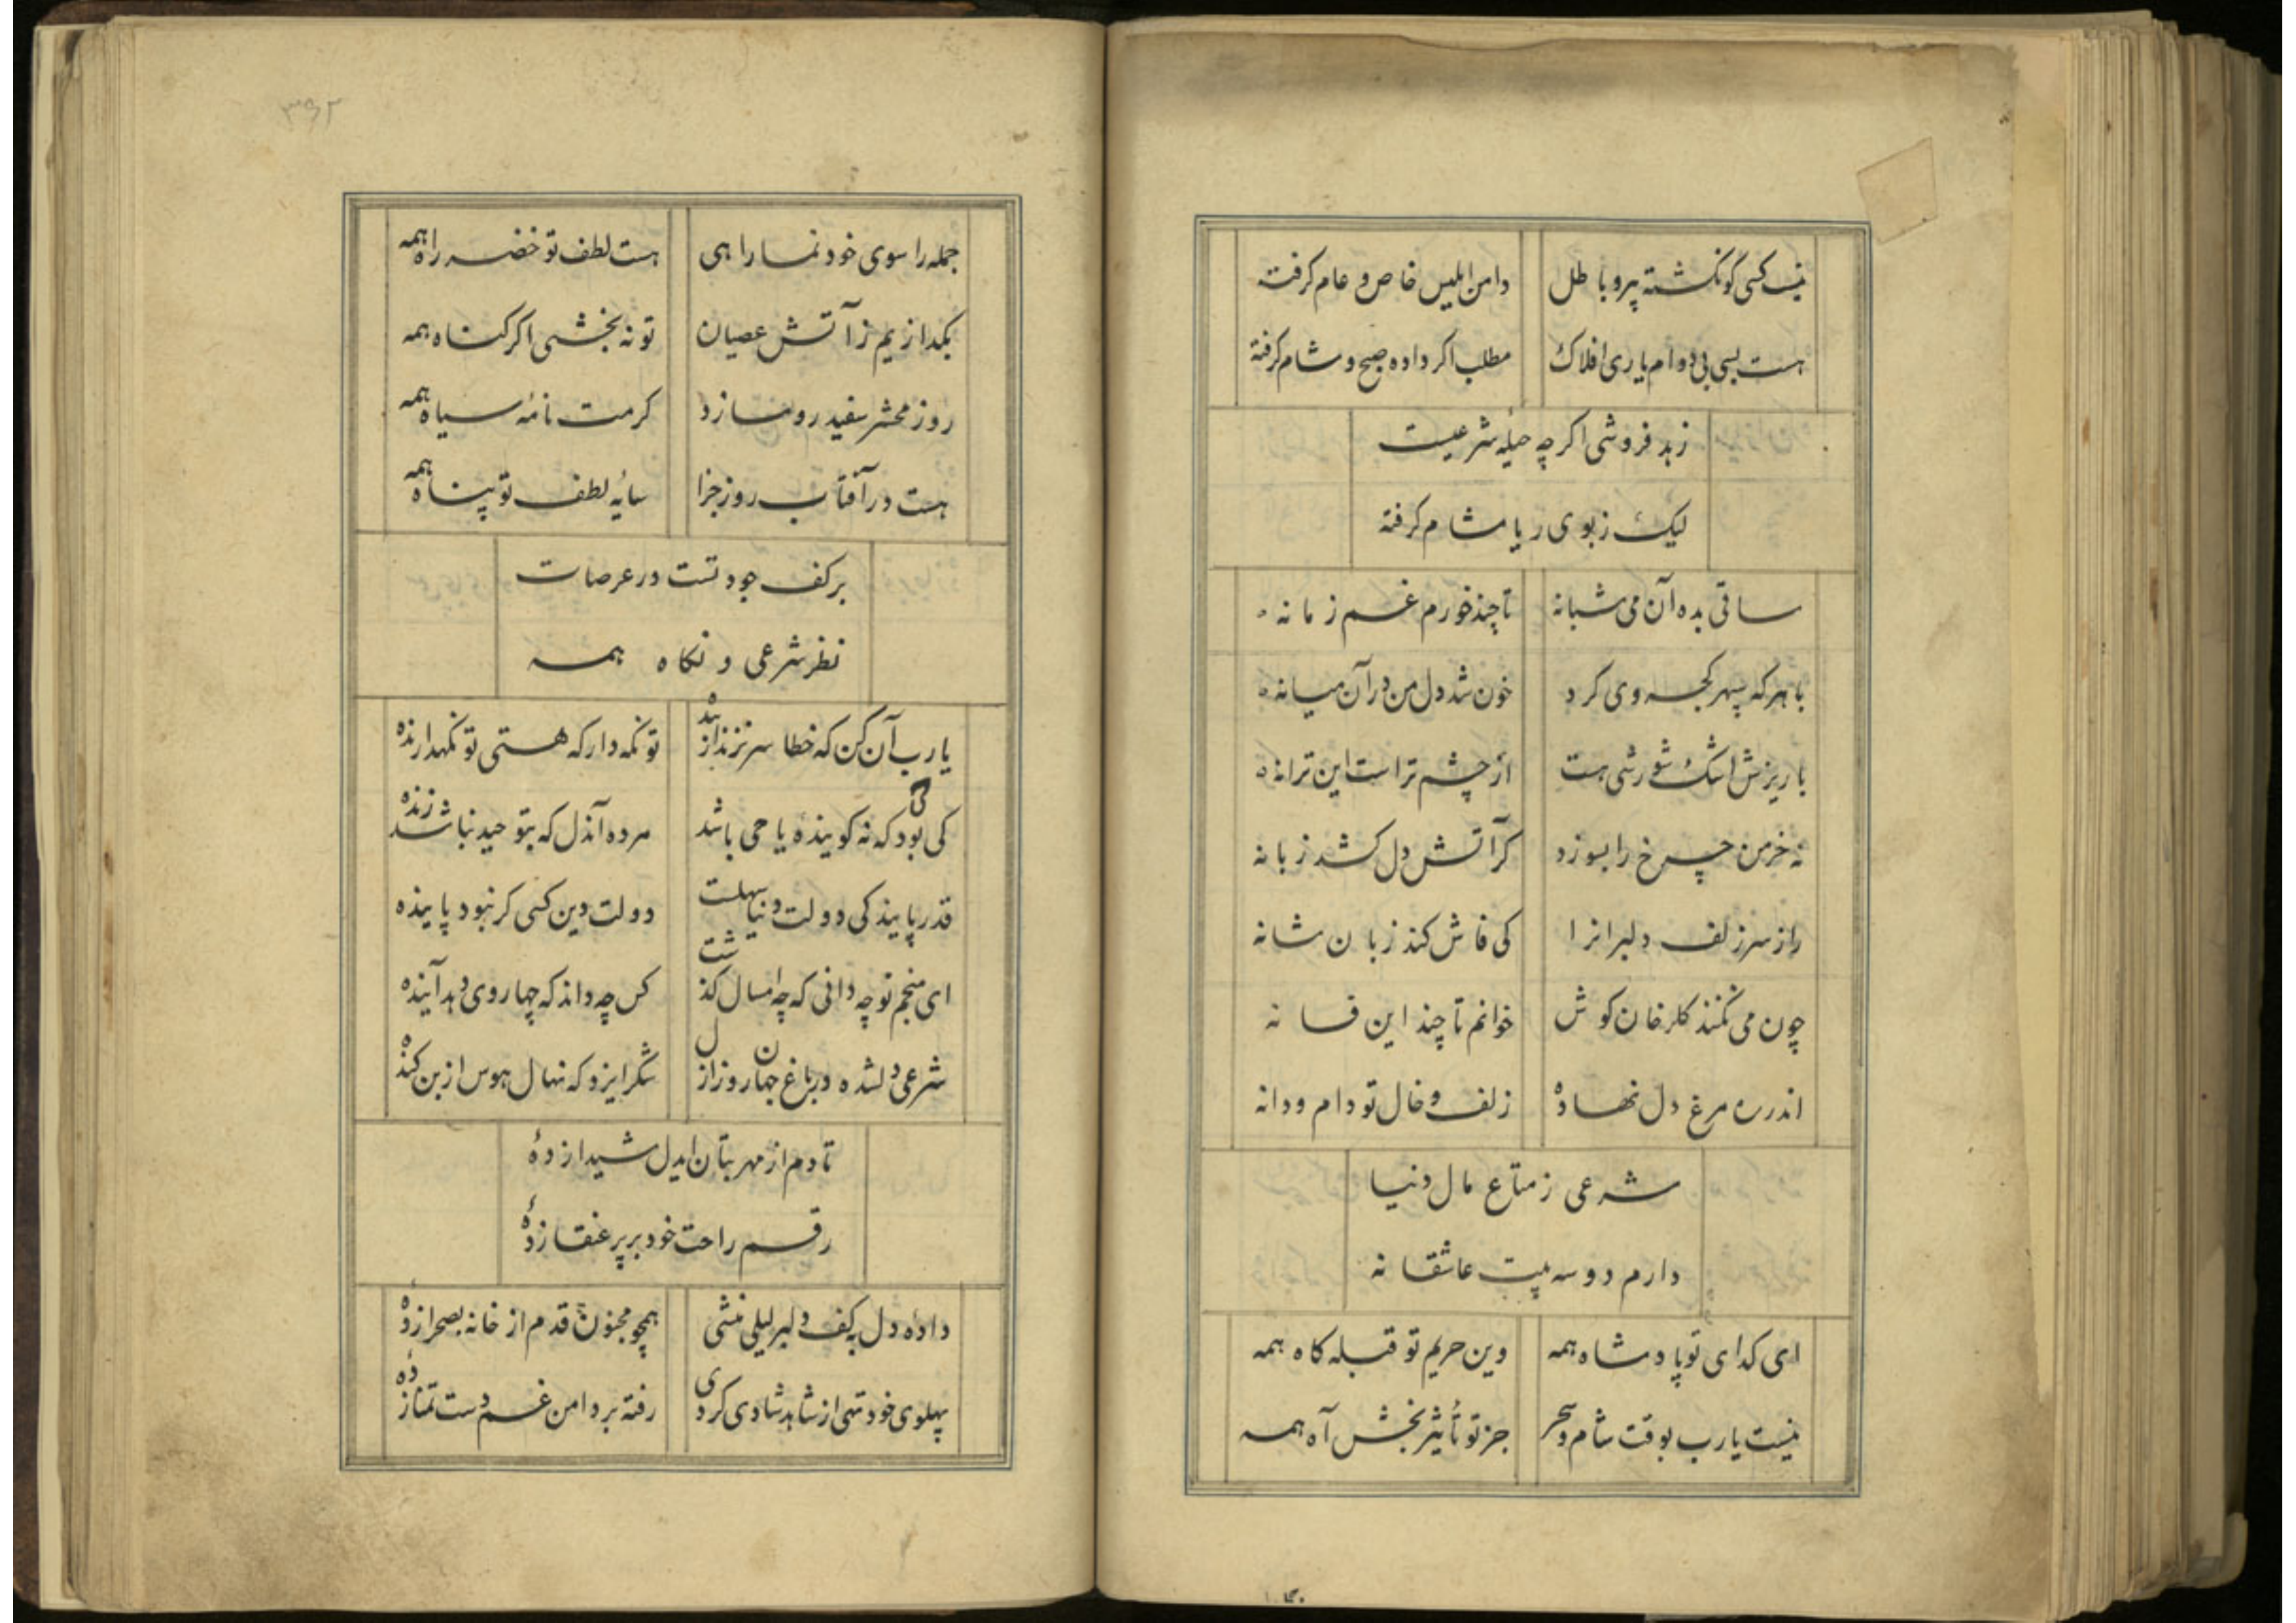 نیست کسی کو نگشته پیرو باطل دامن ابلیس خاص و عام گرفته
هست بسی بی دوام یاری افلاک مطلب اگر داده صبح و شام گرفته
زهد فروشی اگر چه حیلهٔ شرعیست
لیک ز بوی ریا مشام گرفته
ساقی بده آن می شبانه تا چند خورم غم زمانه
با هر که سپهر کجروی کرد خون شد دل من در آن میانه
با ریزش اشک شورشی هست از چشم تر است این ترانه
نه خرمن چرخ را بسوزد گر آتش دل کشد زبانه
راز سر زلف دلبرانرا کی فاش کند زبان شانه
چون می نکنند گلرخان گوش خوانم تا چند این فسانه
اندر ره مرغ دل نهاده زلف و خال تو دام و دانه
شرعی ز متاع مال دنیا
دارم دو سه بیت عاشقانه
ای گدای تو پادشاه همه وین حریم تو قبله گاه همه
نیست یا رب بوقت شام و سحر جز تو تأثیر بخش آه همه
۳۹۲
جمله را سوی خود نما راهی هست لطف تو خضر راه همه
بگدازیم ز آتش عصیان تو نه بخشی اگر گناه همه
روز محشر سفید رو سازد کرمت نامهٔ سیاه همه
هست در آفتاب روز جزا سایهٔ لطف تو پناه همه
بر کف جود تست در عرصات
نظر شرعی و نگاه همه
یا رب آن کن که خطا سر نزند از بنده تو نگه دار که هستی تو نگهدارنده
کی بود کی که نه گوینده یا حی باشد مرده آندل که بتوحید نباشد زنده
قدر پایندگی دولت دنیا سهلست دولت دین کسی گر نبود پاینده
ای منجم تو چه دانی که چه امسال گذشت کس چه داند که چها روی دهد آینده
شرعی دلشده در باغ جهان روز ازل شکر ایزد که نهال هوس از بن کنده
تا دم از مهر بتان ایدل شیدا زدهٔ
رقم راحت خود بر پر عنقا زدهٔ
دادهٔ دل به کف دلبر لیلی منشی همچو مجنون قدم از خانه بصحرا زدهٔ
پهلوی خود تهی از شاهد شادی کردی رفته بر دامن غم دست تمنا زدهٔ